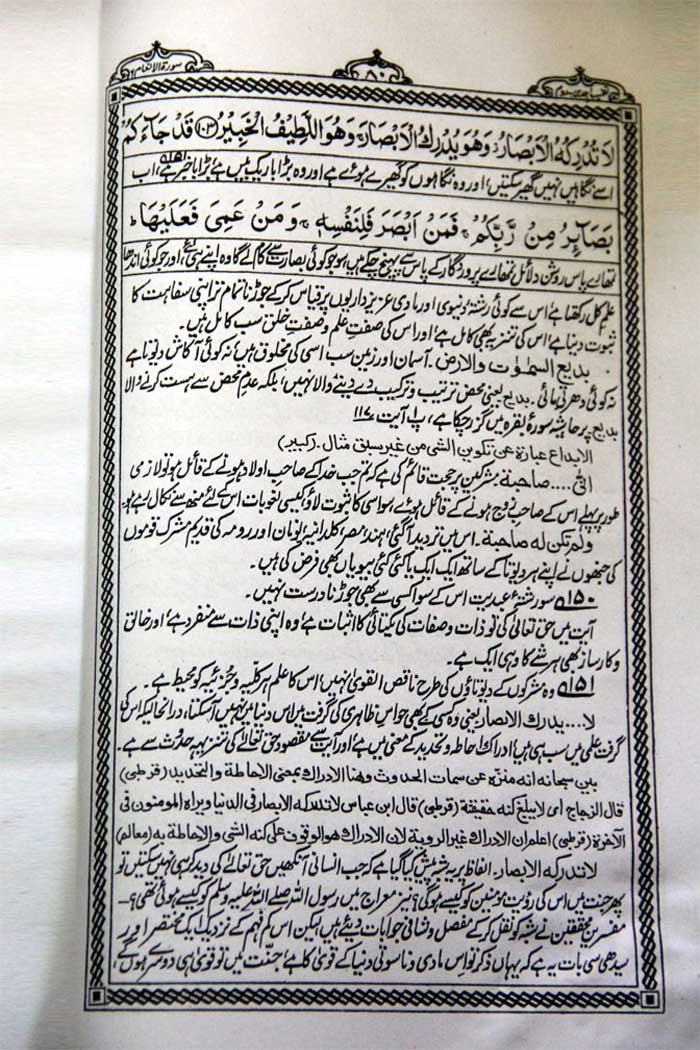 سورۃ الانعام ۶
۸۰
لَا تُدْرِكُهُ الْاَبْصَارُ وَهُوَ يُدْرِكُ الْاَبْصَارَ وَهُوَ اللَّطِيْفُ الْخَبِيْرُ ﴿۱۰۳﴾ قَدْ جَآءَكُمْ
اسے نگاہیں نہیں گھیر سکتیں، اور وہ نگاہوں کو گھیرے ہوئے ہے اور وہ بڑا باریک بیں ہے، بڑا باخبر ہے، ۱۵۱ اب
بَصَآىِٕرُ مِنْ رَّبِّكُمْ فَمَنْ اَبْصَرَ فَلِنَفْسِهٖ وَمَنْ عَمِىَ فَعَلَيْهَا
تمھارے پاس روشن دلائل تمھارے پروردگار کے پاس سے پہنچ چکے ہیں، سو جو کوئی بصارت سے کام لے گا وہ اپنے ہی لئے، اور جو کوئی اندھا
علم کل رکھتا ہے، اس سے کوئی رشتۂ دنیوی اور مادی عزیزداریوں پر قیاس کرکے جوڑنا تمام تر اپنی سفاہت کا
ثبوت دینا ہے، اس کی تنزیہ بھی کامل ہے، اور اس کی صفتِ علم و صفتِ خلق سب کامل ہیں۔
بدیع السمٰوٰت والارض۔ آسمان اور زمین سب اسی کی مخلوق ہیں، نہ کوئی آکاش دیوتا ہے
نہ کوئی دھرتی مائی۔ بدیع یعنی محض ترتیب و ترکیب دے دینے والا نہیں، بلکہ عدمِ محض سے ہست کرنے والا
بدیع پر حاشیہ سورۂ بقرہ میں گزر چکا ہے، پ۱ آیت ۱۱۷
الابداع عبارة عن تكوين الشی من غير سبق مثال۔ (کبیر)
انّٰی .... صاحبة مشرکین پر حجت قائم کی ہے کہ تم جب خدا کے صاحبِ اولاد ہونے کے قائل ہو تو لازمی
طور پر پہلے اس کے صاحبِ زوج ہونے کے قائل ہوئے، سو اسی کا ثبوت لاؤ کیسی لغویات اس کے لئے منھ سے نکال رہے ہو
ولم تکن له صاحبة۔ اس میں تردید آگئی، ہند، مصر، کلدانیہ، یونان اور رومہ کی قدیم مشرک قوموں
کی جنھوں نے اپنے ہر دیوتا کے ساتھ ایک ایک یا کئی کئی بیویاں بھی فرض کی ہیں۔
۱۵۰ سو رشتۂ عبدیت اس کے سوا کسی سے بھی جوڑنا درست نہیں۔
آیت میں حق تعالیٰ کی تو ذات و صفات کی یکتائی کا اثبات ہے، وہ اپنی ذات سے منفرد ہے، اور خالق
و کارساز بھی ہر شے کا وہی ایک ہے۔
۱۵۱ وہ مشرکوں کے دیوتاؤں کی طرح ناقص القویٰ نہیں، اس کا علم ہر کلّیہ و جُزئیہ کو محیط ہے۔
لا .... یدرك الابصار یعنی وہ کسی کے بھی حواسِ ظاہری کی گرفت میں اس دنیا میں نہیں آسکتا، درانحالیکہ اس کی
گرفتِ علمی میں سب ہی ہیں، ادراک احاطہ و تحدید کے معنی میں ہے، اور آیت سے مقصود حق تعالیٰ کی تنزیہ حدوث سے ہے۔
بین سبحانه انه منزّہ عن سمات الحدوث وھنا الادراك بمعنی الاحاطة والتحدید (قرطبی)
قال الزجاج ای لا یبلغ کنه حقیقته (قرطبی) قال ابن عباس لا تدرکه الابصار فی الدنیا ویراہ المومنون فی
الآخرة (قرطبی) اعلم ان الادراك غیر الرویة لان الادراك ھو الوقوف علی کنه الشی والاحاطة به (معالم)
لا تدرکه الابصار۔ الفاظ پر یہ شبہ پیش کیا گیا ہے کہ جب انسانی آنکھیں حق تعالیٰ کی دید کر ہی نہیں سکتیں تو
پھر جنت میں اس کی رؤیت مومنین کو کیسے ہوگی؟ نیز معراج میں رسول اللہ صلے اللہ علیہ وسلم کو کیسے ہوئی تھی؟۔
مفسرین محققین نے شبہ کو نقل کرکے مفصل و شافی جوابات دیئے ہیں لیکن اس کم فہم کے نزدیک ایک مختصر اور
سیدھی سی بات یہ ہے کہ یہاں ذکر تو اس مادی و ناسوتی دنیا کے قویٰ کا ہے، جنّت میں تو قویٰ ہی دوسرے ہوں گے،